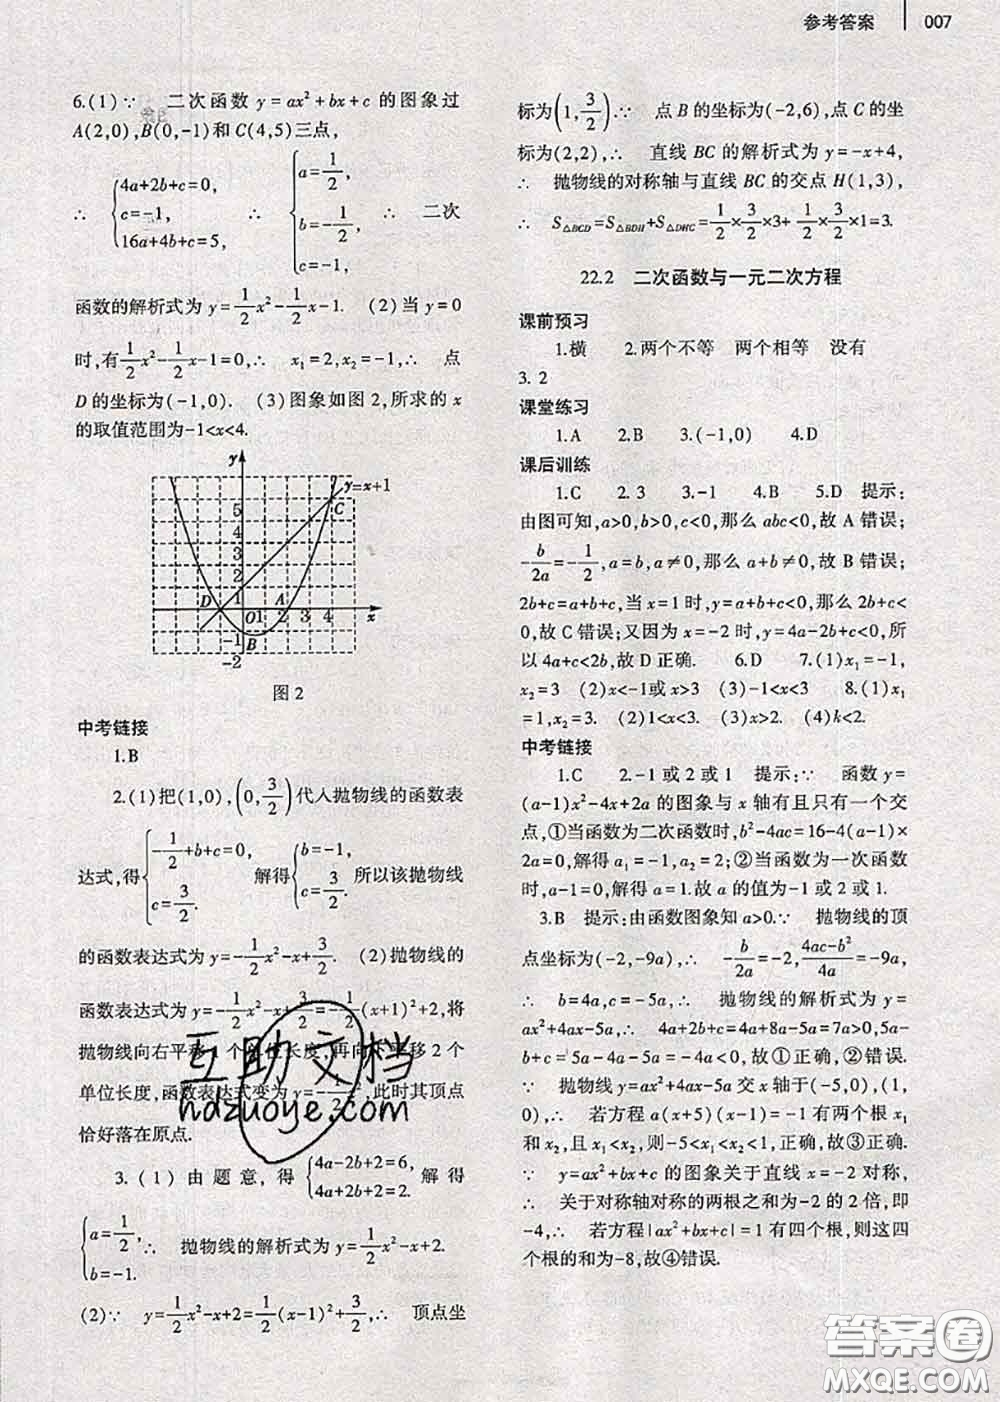 参考答案 007
6.(1)∵ 二次函数 y=ax²+bx+c 的图象过
A(2,0),B(0,-1)和C(4,5)三点,
∴ {4a+2b+c=0, c=-1, 16a+4b+c=5, ∴ {a=1/2, b=-1/2, c=-1. ∴ 二次
函数的解析式为 y=1/2x²-1/2x-1. (2)当 y=0
时,有1/2x²-1/2x-1=0,∴ x₁=2,x₂=-1,∴ 点
D 的坐标为(-1,0). (3)图象如图 2,所求的 x
的取值范围为-1<x<4.
y
y=x+1
5
C
4
3
2
1
D A
O 1 2 3 4 x
-1 B
-2
图 2
中考链接
1.B
2.(1)把(1,0),(0,3/2)代入抛物线的函数表
达式,得{-1/2+b+c=0, c=3/2. 解得{b=-1, c=3/2. 所以该抛物线
的函数表达式为 y=-1/2x²-x+3/2. (2)抛物线的
函数表达式为 y=-1/2x²-x+3/2=-1/2(x+1)²+2,将
抛物线向右平移 个单位长度,再向 平移 2 个
单位长度,函数表达式变为 y=- ,此时其顶点
恰好落在原点.
3.(1)由题意,得{4a-2b+2=6, 4a+2b+2=2. 解得
{a=1/2, b=-1. ∴ 抛物线的解析式为 y=1/2x²-x+2.
(2)∵ y=1/2x²-x+2=1/2(x-1)²+3/2,∴ 顶点坐
标为(1,3/2).∵ 点 B 的坐标为(-2,6),点 C 的坐
标为(2,2),∴ 直线 BC 的解析式为 y=-x+4,
∴ 抛物线的对称轴与直线 BC 的交点 H(1,3),
∴ S△BCD=S△BDH+S△DHC=1/2×3/2×3+1/2×3/2×1=3.
22.2 二次函数与一元二次方程
课前预习
1.横 2.两个不等 两个相等 没有
3. 2
课堂练习
1.A 2.B 3.(-1,0) 4.D
课后训练
1.C 2. 3 3.-1 4.B 5.D 提示:
由图可知,a>0,b>0,c<0,那么 abc<0,故 A 错误;
-b/2a=-1/2,a=b,a≠0,那么 a+b≠0,故 B 错误;
2b+c=a+b+c,当 x=1 时,y=a+b+c<0,那么 2b+c<
0,故 C 错误;又因为 x=-2 时,y=4a-2b+c<0,所
以 4a+c<2b,故 D 正确. 6.D 7.(1)x₁=-1,
x₂=3 (2)x<-1或x>3 (3)-1<x<3 8.(1)x₁
=1,x₂=3. (2)1<x<3. (3)x>2. (4)k<2.
中考链接
1.C 2.-1 或 2 或 1 提示:∵ 函数 y=
(a-1)x²-4x+2a 的图象与 x 轴有且只有一个交
点,①当函数为二次函数时,b²-4ac=16-4(a-1)×
2a=0,解得 a₁=-1,a₂=2;②当函数为一次函数
时,a-1=0,解得 a=1.故 a 的值为-1 或 2 或 1.
3.B 提示:由函数图象知 a>0.∵ 抛物线的顶
点坐标为(-2,-9a),∴ -b/2a=-2,4ac-b²/4a=-9a,
∴ b=4a,c=-5a,∴ 抛物线的解析式为 y=
ax²+4ax-5a,∴ 4a+2b+c=4a+8a-5a=7a>0,5a-
b+c=5a-4a-5a=-4a<0,故①正确,②错误.
∵ 抛物线 y=ax²+4ax-5a 交 x 轴于(-5,0),(1,
0),∴ 若方程 a(x+5)(x-1)=-1 有两个根 x₁
和 x₂,且 x₁<x₂,则-5<x₁<x₂<1,正确,故③正确.
∵ y=ax²+bx+c 的图象关于直线 x=-2 对称,
∴ 关于对称轴对称的两根之和为-2 的 2 倍,即
-4,∴ 若方程|ax²+bx+c|=1 有四个根,则这四
个根的和为-8,故④错误.
互助文档
hdzuoye.com
答案圈
MXQE.COM